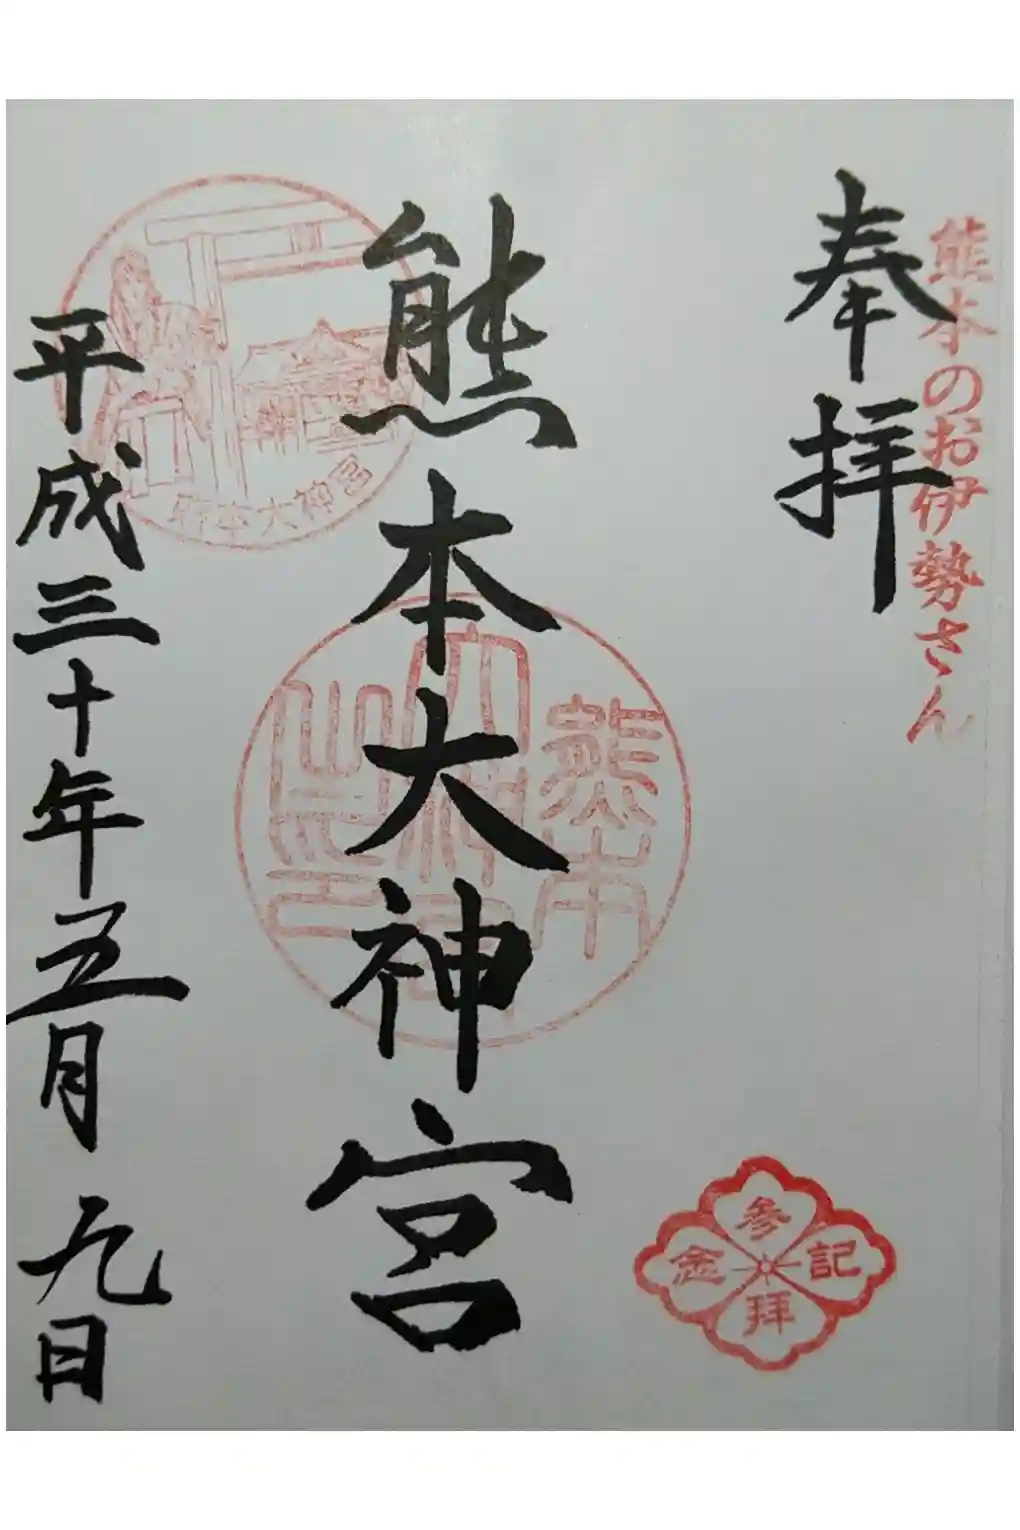 熊本のお伊勢さん
奉拝
熊本大神宮
熊本
大神宮
之印
熊本大神宮
参拝
記念
平成三十年五月九日